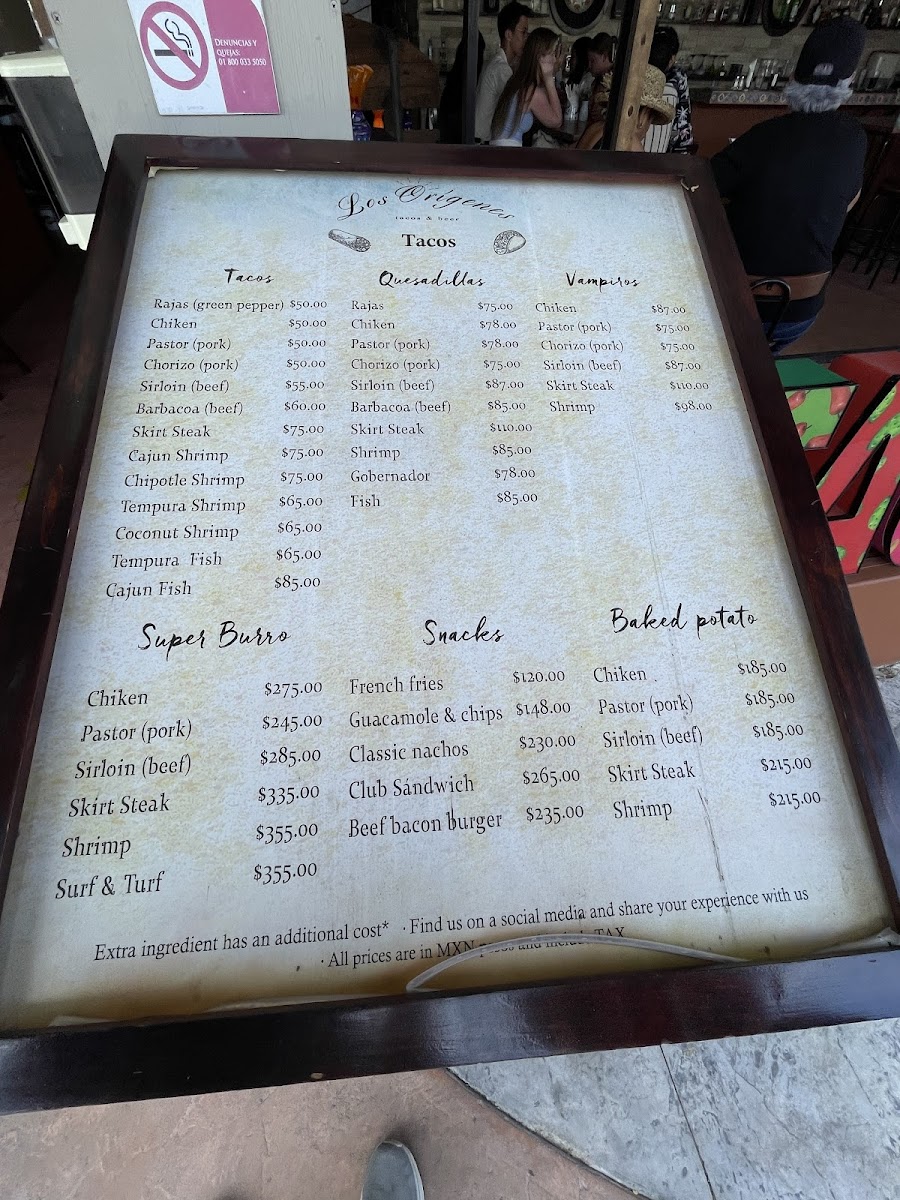 DENUNCIAS Y
QUEJAS:
01 800 033 5050
Los Orígenes
tacos & beer
Tacos
Tacos
Rajas (green pepper) $50.00
Chiken $50.00
Pastor (pork) $50.00
Chorizo (pork) $50.00
Sirloin (beef) $55.00
Barbacoa (beef) $60.00
Skirt Steak $75.00
Cajun Shrimp $75.00
Chipotle Shrimp $75.00
Tempura Shrimp $65.00
Coconut Shrimp $65.00
Tempura Fish $65.00
Cajun Fish $85.00
Quesadillas
Rajas $75.00
Chiken $78.00
Pastor (pork) $78.00
Chorizo (pork) $75.00
Sirloin (beef) $87.00
Barbacoa (beef) $85.00
Skirt Steak $110.00
Shrimp $85.00
Gobernador $78.00
Fish $85.00
Vampiros
Chiken $87.00
Pastor (pork) $75.00
Chorizo (pork) $75.00
Sirloin (beef) $87.00
Skirt Steak $110.00
Shrimp $98.00
Super Burro
Chiken $275.00
Pastor (pork) $245.00
Sirloin (beef) $285.00
Skirt Steak $335.00
Shrimp $355.00
Surf & Turf $355.00
Snacks
French fries $120.00
Guacamole & chips $148.00
Classic nachos $230.00
Club Sándwich $265.00
Beef bacon burger $235.00
Baked potato
Chiken $185.00
Pastor (pork) $185.00
Sirloin (beef) $185.00
Skirt Steak $215.00
Shrimp $215.00
Extra ingredient has an additional cost* · Find us on a social media and share your experience with us
· All prices are in MXN pesos and include TAX